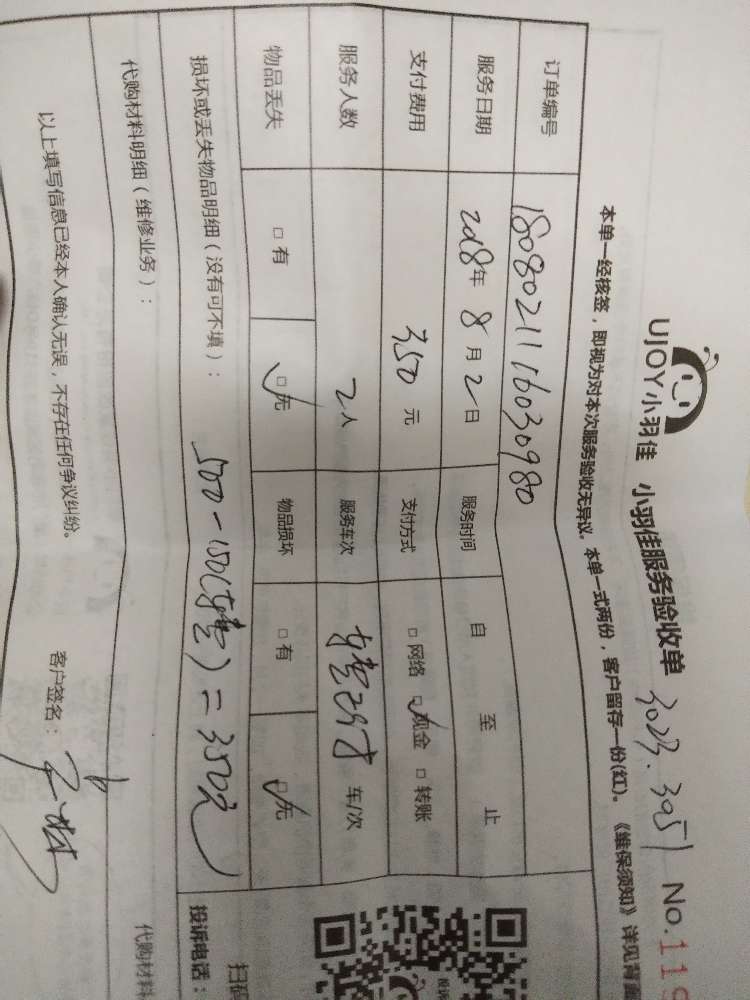 UJOY小羽佳 小羽佳服务验收单 3023.3051 No.119
本单一经核签，即视为对本次服务验收无异议。本单一式两份，客户留存一份(红)。《维保须知》详见背面
订单编号 1808021116030980
服务日期 2018年8月2日 服务时间 自 至 止
支付费用 350元 支付方式 □网络 ☑现金 □转账
服务人数 2人 服务车次 车/次
物品丢失 □有 ☑无 物品损坏 □有 ☑无
损坏或丢失物品明细（没有可不填）： 500-150(车费)=350元
投诉电话：
代购材料明细（维修业务）：
代购材料
扫码
以上填写信息已经本人确认无误，不存在任何争议纠纷。 客户签名：